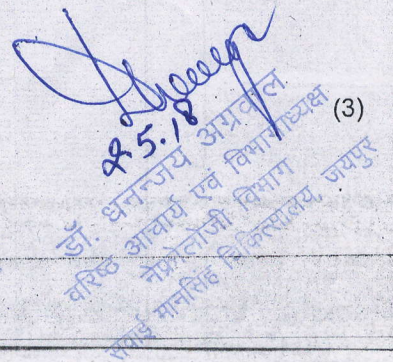 (3)
2.5.18
डॉ. धनन्जय अग्रवाल
वरिष्ठ आचार्य एवं विभागाध्यक्ष
नेफ्रोलोजी विभाग
सवाई मानसिंह चिकित्सालय, जयपुर